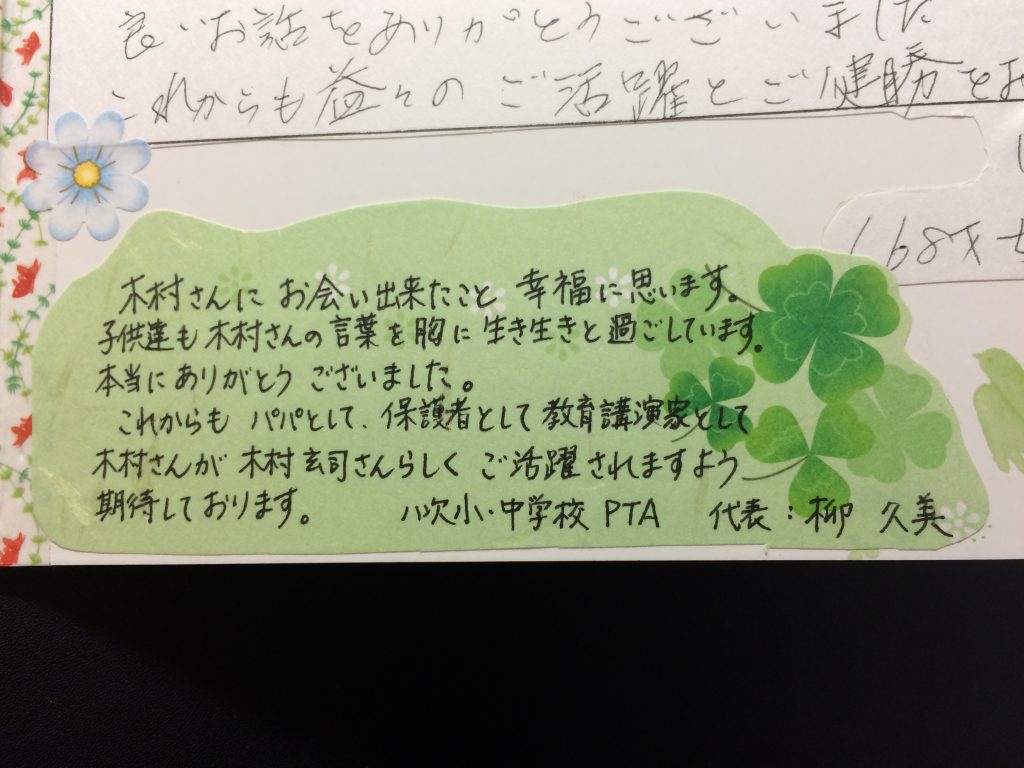 良いお話をありがとうございました
これからも益々のご活躍とご健勝をお
168
木村さんに お会い出来たこと 幸福に思います。
子供達も木村さんの言葉を胸に生き生きと過ごしています。
本当にありがとう ございました。
これからも パパとして、保護者として教育講演家として
木村さんが 木村玄司さんらしく ご活躍されますよう
期待しております。 小・中学校 PTA 代表:柳 久美